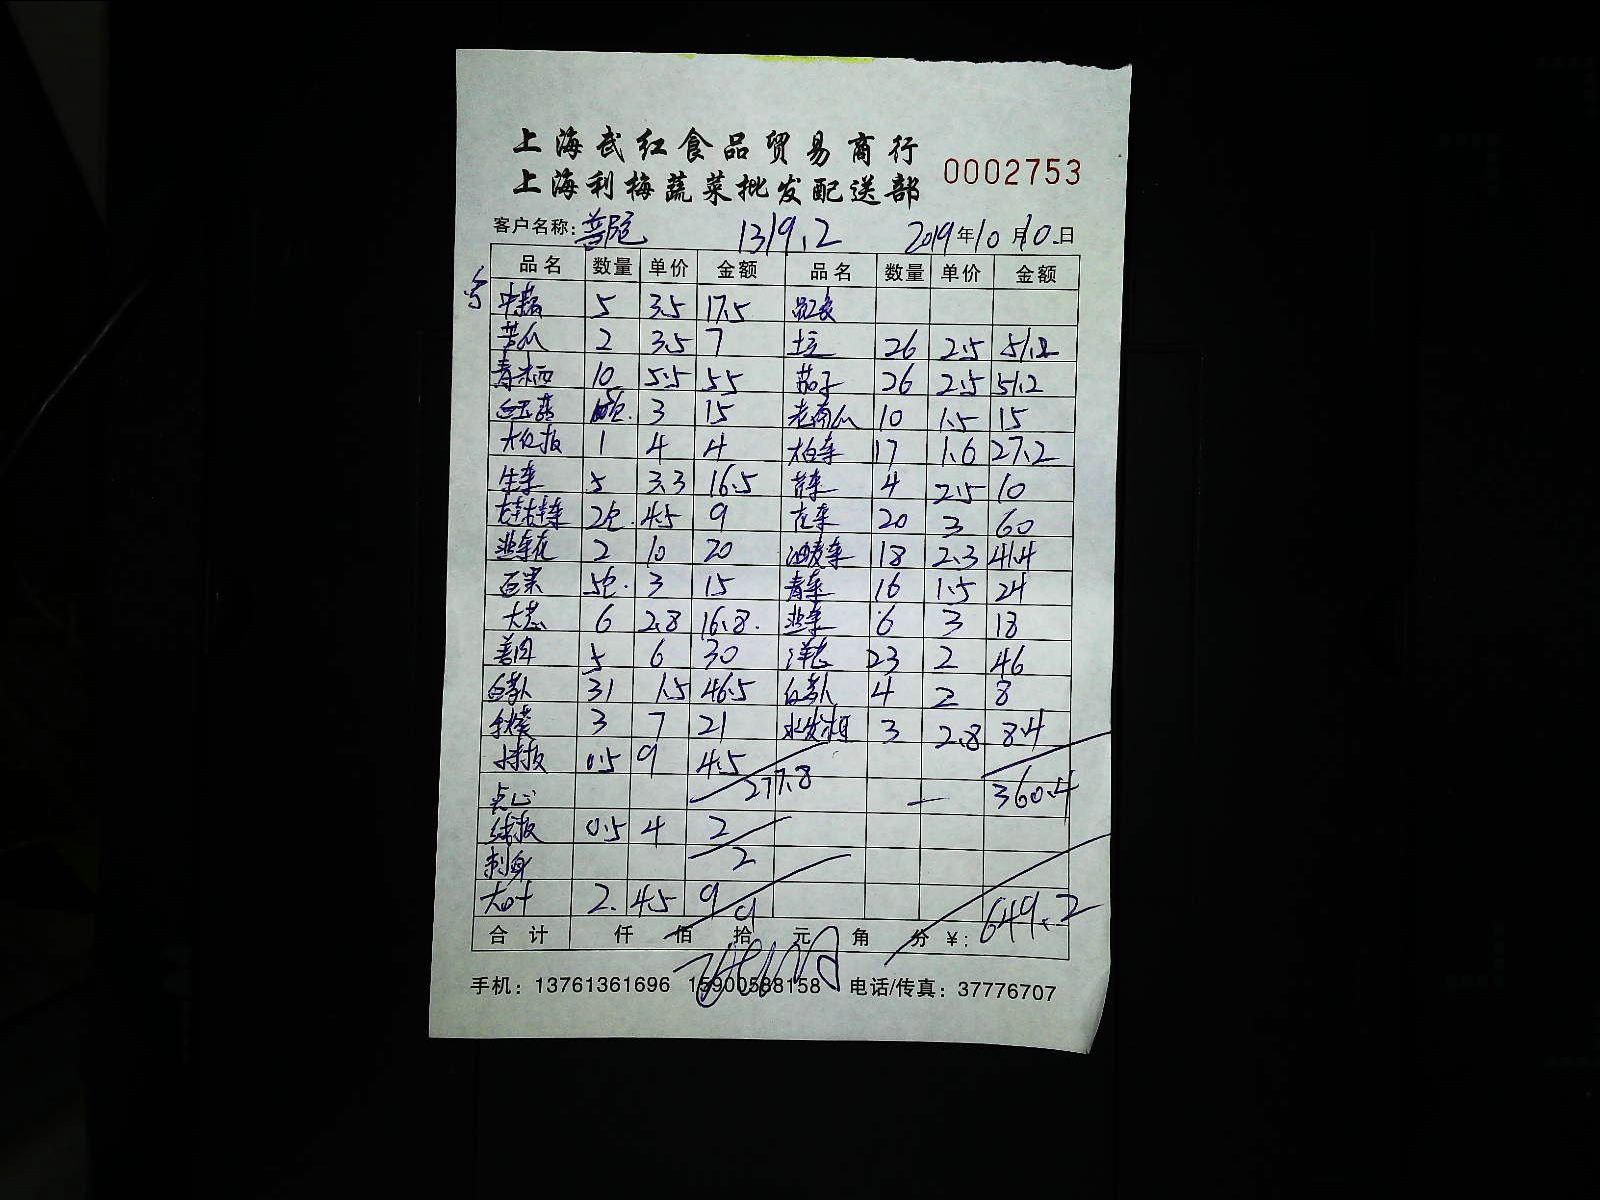 上海武红食品贸易商行
上海利梅蔬菜批发配送部
0002753
客户名称: 1319.2 2019年10月10日
品名 数量 单价 金额 品名 数量 单价 金额
5 3.5 17.5
2 3.5 7 土豆 26 2.5 51.2
10 5.5 55 茄子 26 2.5 51.2
3 15 老南瓜 10 1.5 15
1 4 4 大白菜 17 1.6 27.2
生菜 5 3.3 16.5 4 2.5 10
2包 4.5 9 20 3 60
韭菜花 2 10 20 油麦菜 18 2.3 41.4
5包 3 15 青菜 16 1.5 24
大葱 6 2.8 16.8 韭菜 6 3 18
5 6 30 洋葱 23 2 46
白萝卜 31 1.5 46.5 白萝卜 4 2 8
3 7 21 3 2.8 8.4
0.5 9 4.5
点心 277.8 360.4
0.5 4 2
刺身 2
大叶 2 4.5 9
9 649.2
合计 仟 佰 拾 元 角 分 ¥:
手机: 13761361696 15900588158 电话/传真: 37776707